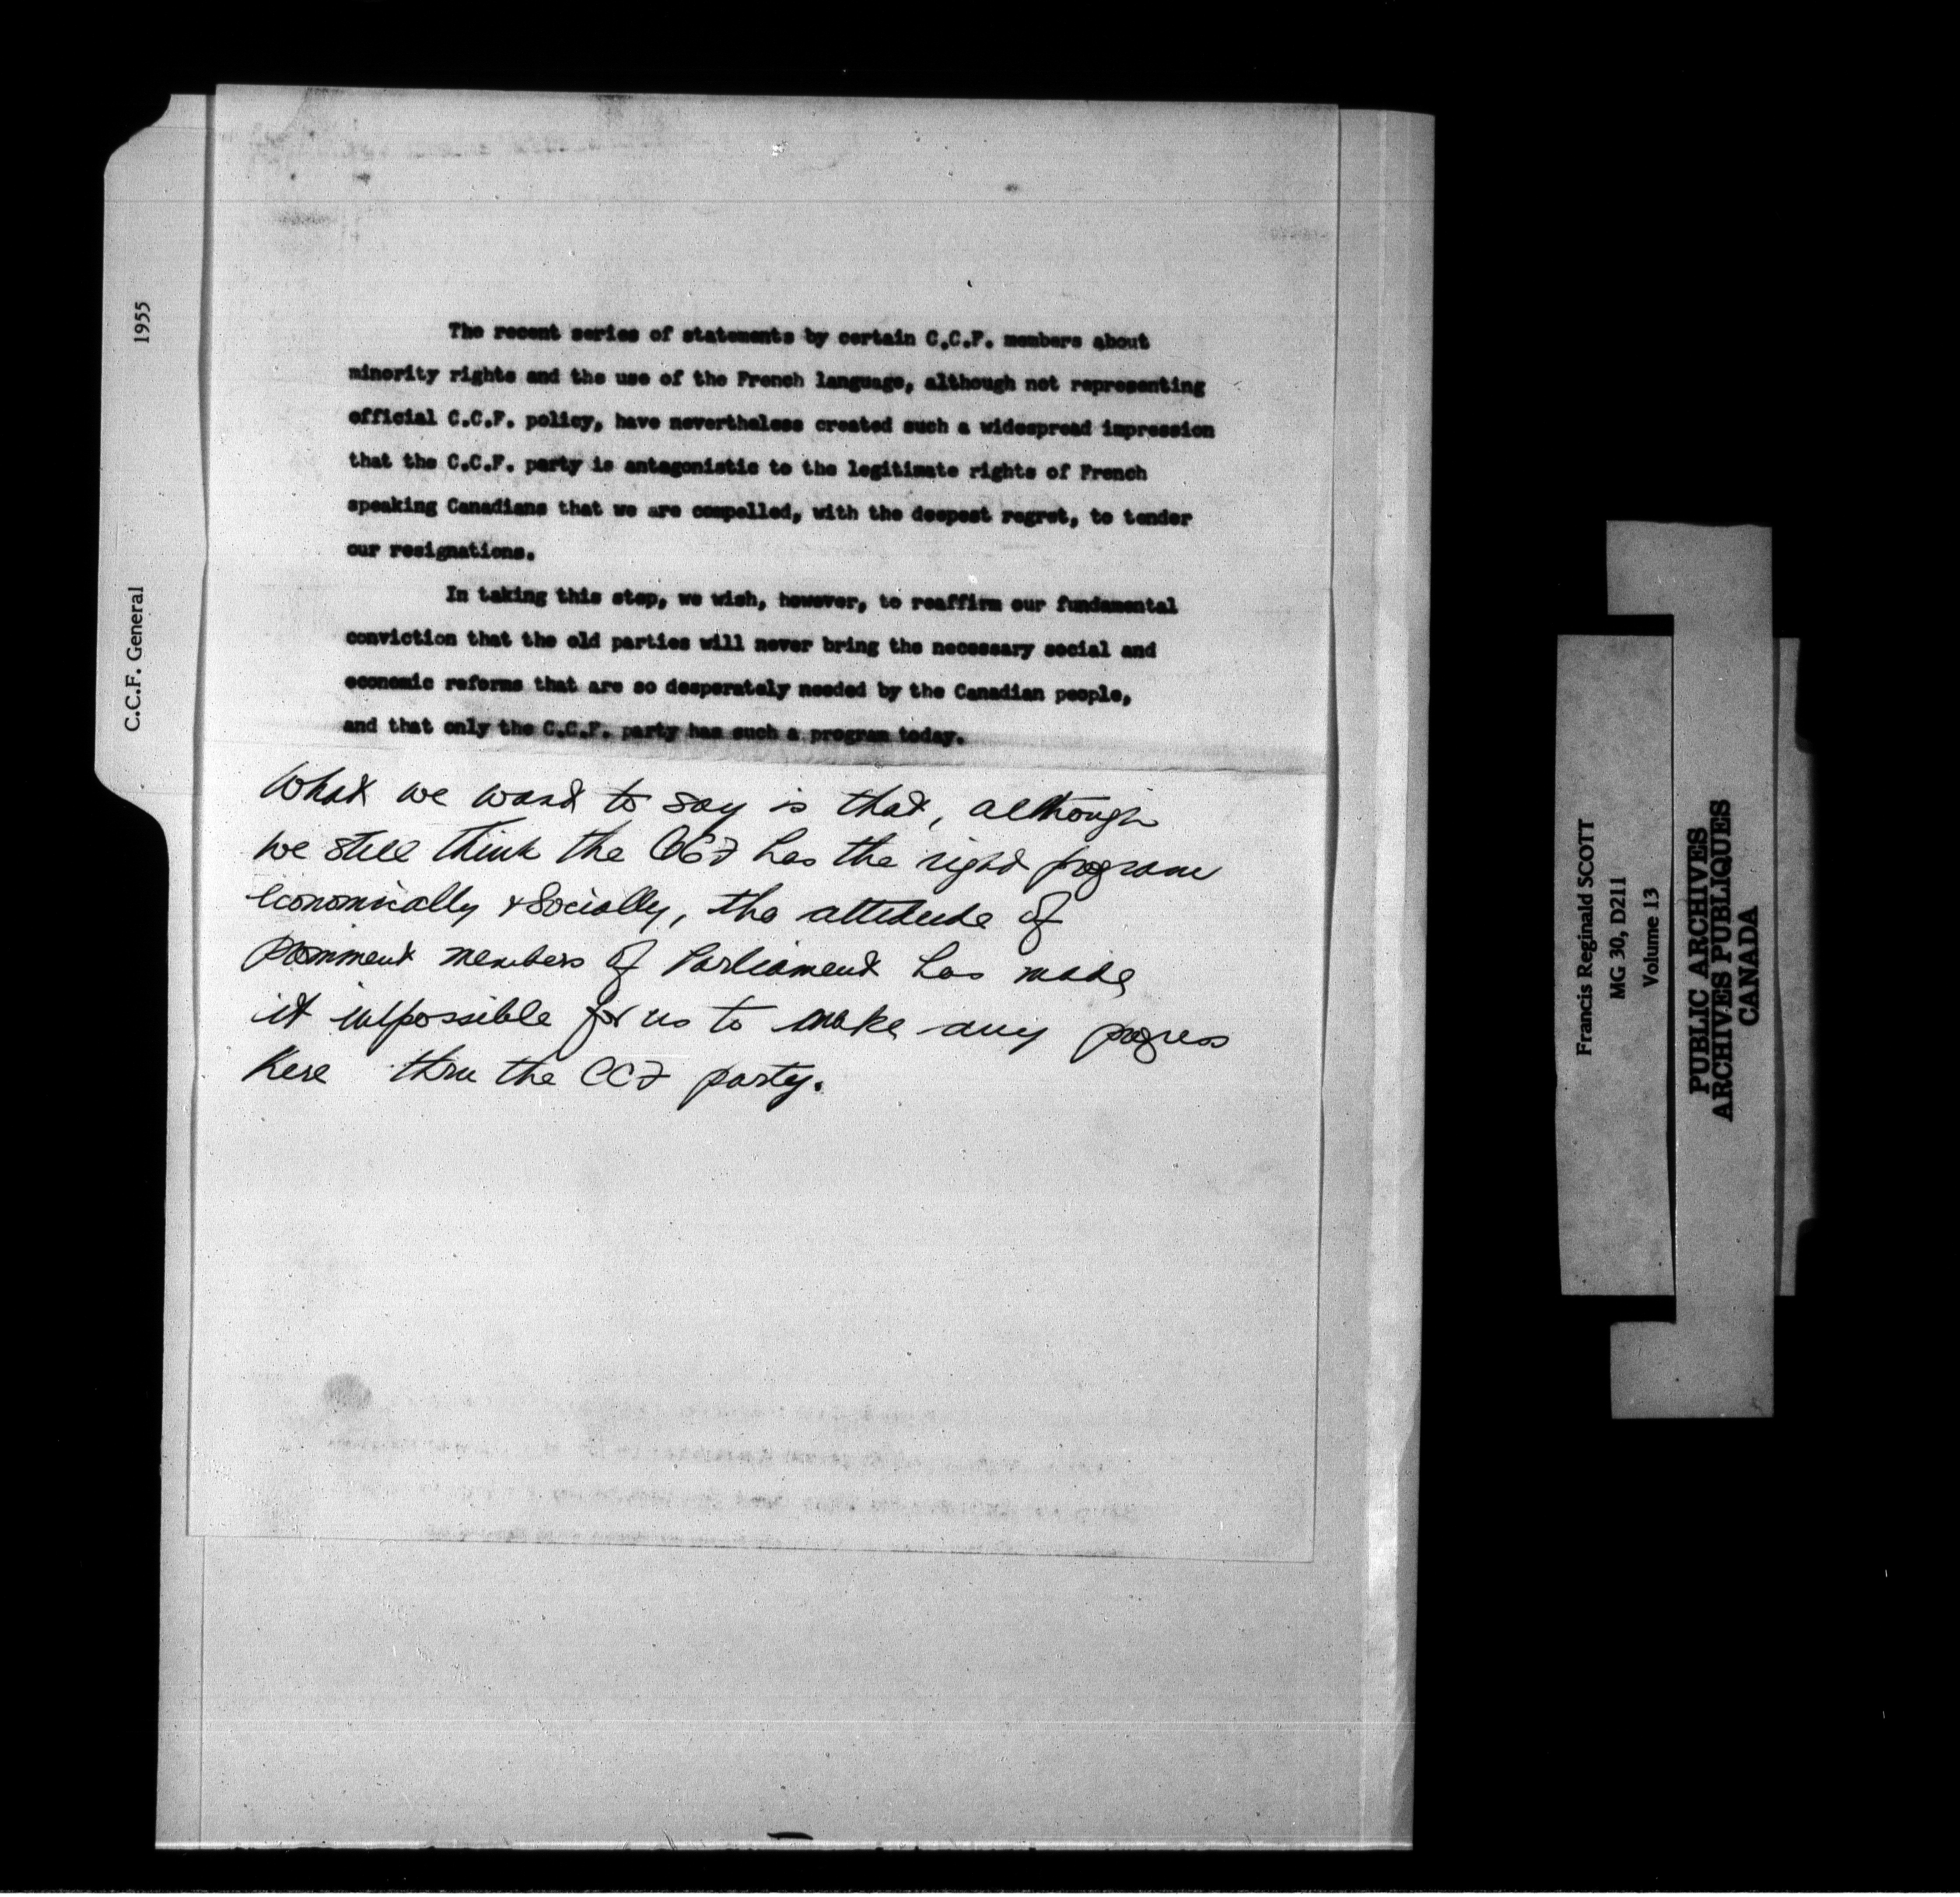 The recent series of statements by certain C.C.F. members about
minority rights and the use of the French language, although not representing
official C.C.F. policy, have nevertheless created such a widespread impression
that the C.C.F. party is antagonistic to the legitimate rights of French
speaking Canadians that we are compelled, with the deepest regret, to tender
our resignations.
In taking this step, we wish, however, to reaffirm our fundamental
conviction that the old parties will never bring the necessary social and
economic reforms that are so desperately needed by the Canadian people,
and that only the C.C.F. party has such a program today.
What we want to say is that, although
we still think the CCF has the right program
economically & socially, the attitude of
prominent members of Parliament has made
it impossible for us to make any progress
here thru the CCF party.
C.C.F. General 1955
Francis Reginald SCOTT
MG 30, D211
Volume 13
PUBLIC ARCHIVES
ARCHIVES PUBLIQUES
CANADA